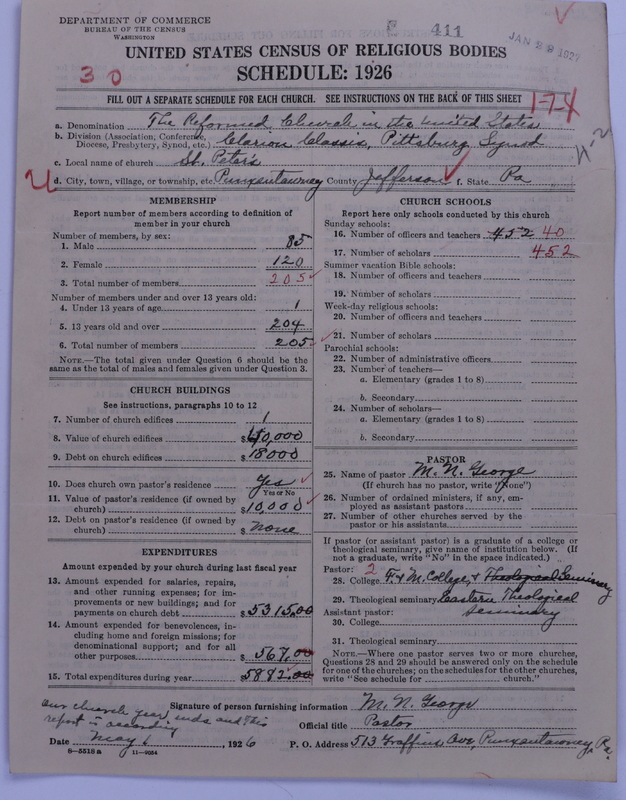 DEPARTMENT OF COMMERCE
BUREAU OF THE CENSUS
WASHINGTON
411
JAN 28 1927
UNITED STATES CENSUS OF RELIGIOUS BODIES
SCHEDULE: 1926
30
FILL OUT A SEPARATE SCHEDULE FOR EACH CHURCH. SEE INSTRUCTIONS ON THE BACK OF THIS SHEET
1-74
4-2
a. Denomination The Reformed Church in the United States
b. Division (Association, Conference, Diocese, Presbytery, Synod, etc.) Clarion Classis, Pittsburg Synod
c. Local name of church St. Peter's
d. City, town, village, or township, etc. Punxsutawney County Jefferson f. State Pa
MEMBERSHIP
Report number of members according to definition of
member in your church
Number of members, by sex:
1. Male 85
2. Female 120
3. Total number of members 205
Number of members under and over 13 years old:
4. Under 13 years of age 1
5. 13 years old and over 204
6. Total number of members 205
NOTE.—The total given under Question 6 should be the
same as the total of males and females given under Question 3.
CHURCH BUILDINGS
See instructions, paragraphs 10 to 12
7. Number of church edifices 1
8. Value of church edifices $ 40,000
9. Debt on church edifices $ 18000
10. Does church own pastor's residence Yes
Yes or No
11. Value of pastor's residence (if owned by
church) $10,000
12. Debt on pastor's residence (if owned by
church) $ none
EXPENDITURES
Amount expended by your church during last fiscal year
13. Amount expended for salaries, repairs,
and other running expenses; for im-
provements or new buildings; and for
payments on church debt $5315.00
14. Amount expended for benevolences, in-
cluding home and foreign missions; for
denominational support; and for all
other purposes $ 567.00
15. Total expenditures during year $5882.00
CHURCH SCHOOLS
Report here only schools conducted by this church
Sunday schools:
16. Number of officers and teachers 452 40
17. Number of scholars 452
Summer vacation Bible schools:
18. Number of officers and teachers
19. Number of scholars
Week-day religious schools:
20. Number of officers and teachers
21. Number of scholars
Parochial schools:
22. Number of administrative officers
23. Number of teachers—
a. Elementary (grades 1 to 8)
b. Secondary
24. Number of scholars—
a. Elementary (grades 1 to 8)
b. Secondary
PASTOR
25. Name of pastor M. N. George
(If church has no pastor, write "None")
26. Number of ordained ministers, if any, em-
ployed as assistant pastors
27. Number of other churches served by the
pastor or his assistants
If pastor (or assistant pastor) is a graduate of a college or
theological seminary, give name of institution below. (If
not a graduate, write "No" in the space indicated.)
Pastor: 2
28. College F. & M. College, & Theological Seminary
29. Theological seminary Eastern Theological
Assistant pastor: Seminary
30. College
31. Theological seminary
NOTE.—Where one pastor serves two or more churches,
Questions 28 and 29 should be answered only on the schedule
for one of the churches; on the schedules for the other churches,
write "See schedule for church."
Our church year ends and this
report is according
Signature of person furnishing information M. N. George
Official title Pastor
Date May 6, 1926 P. O. Address 513 Graffius, Ave, Punxsutawney, Pa.
8—5518a 11—9034